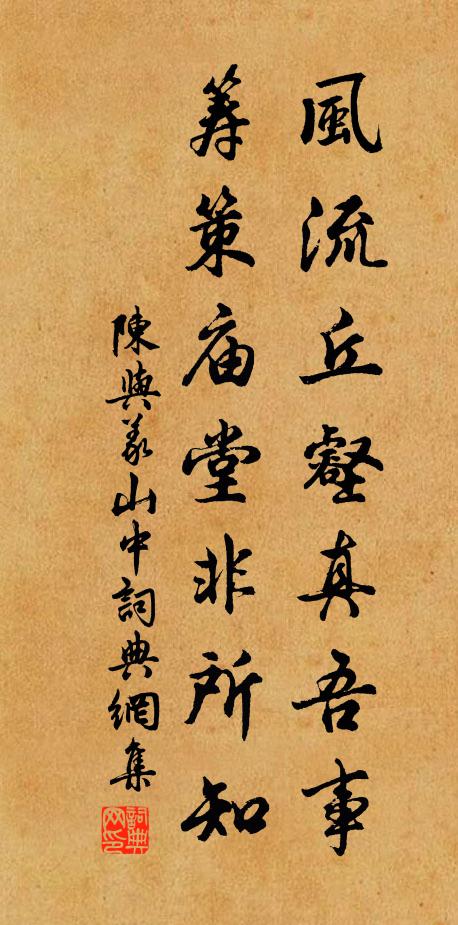 風流丘壑真吾事
籌策庙堂非所知
陳與義山中詞典網集
詞典网印